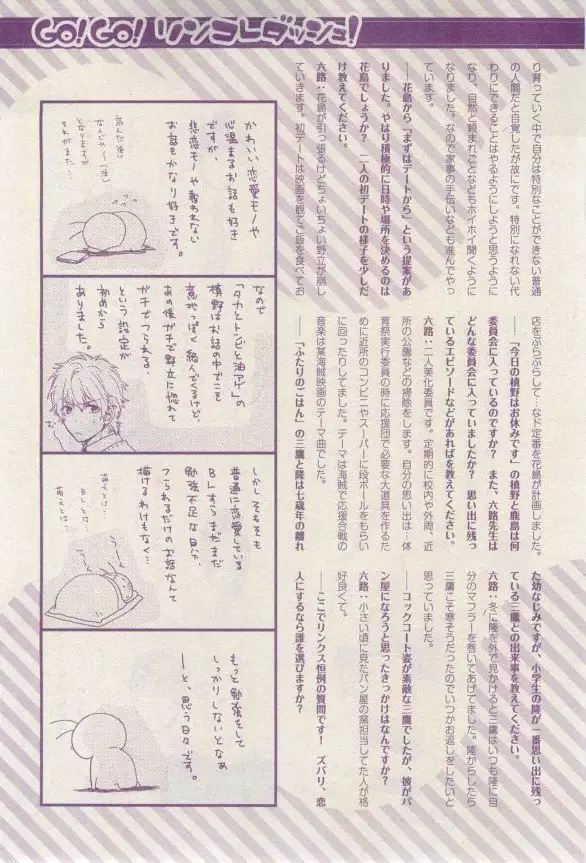 GO!GO! リンコレダッシュ!
り育っていく中で自分は特別なことができない普通
の人間だと自覚したが故にです。特別になれない代
わりにできることはやるようにしようと思うように
なり、自然と頼まれごとなどもホイホイ聞くように
なりました。なので家事の手伝いなども進んでやっ
ています。
──花島から「まずはデートから」という提案があ
りました。やはり積極的に日時や場所を決めるのは
花島でしょうか? 二人の初デートの様子を少しだ
け教えてください。
六路:花島が引っ張るけどちょいちょい野立が崩し
ていきます。初デートは映画を観てご飯を食べてお
店をぶらぶらして…など定番を花島が計画しました。
──「今日の槙野はお休みです」の槙野と鹿島は何
委員会に入っているのですか? また、六路先生は
どんな委員会に入っていましたか? 思い出に残っ
ているエピソードなどがあればを教えてください。
六路:二人美化委員です。定期的に校内や外周、近
所の公園などの掃除をします。自分の思い出は…体
育祭実行委員の時に応援団で必要な大道具を作るた
めに近所のコンビニやスーパーに段ボールをもらい
に回ったりしてました。テーマは海賊で応援合戦の
音楽は某海賊映画のテーマ曲でした。
──「ふたりのごはん」の三鷹と隆は七歳年の離れ
た幼なじみですが、小学生の隆が一番思い出に残っ
ている三鷹との出来事を教えてください。
六路:冬に隆を外で見かけると三鷹はいつも隆に自
分のマフラーを巻いてあげてました。隆からしたら
三鷹こそ寒そうだったのでいつかお返しをしたいと
思っていました。
──コックコート姿が素敵な三鷹でしたが、彼がパ
ン屋になろうと思ったきっかけはなんですか?
六路:小さい頃に見たパン屋の窯担当してた人が格
好良くて。
──ここでリンクス恒例の質問です! ズバリ、恋
人にするなら誰を選びますか?
かわいい恋愛モノや
心温まるお話も好き
ですが、
悲恋モノや報われない
お話もかなり好きです。
なので
「タカとトンビと油アゲ」の
槙野はお話の中でこそ
意地っぽく絡んでくるけど、
あの後ガチで野立に惚れて
ガチでフられる、
という設定が
初めから
ありました。
しかしそもそも
普通に恋愛している
BLすらまだまだ
勉強不足な私が、
フられるだけのお話なんて
描けるわけもなく…
もっと勉強をして
しっかりしないとなぁ
ーと、思う日々です。